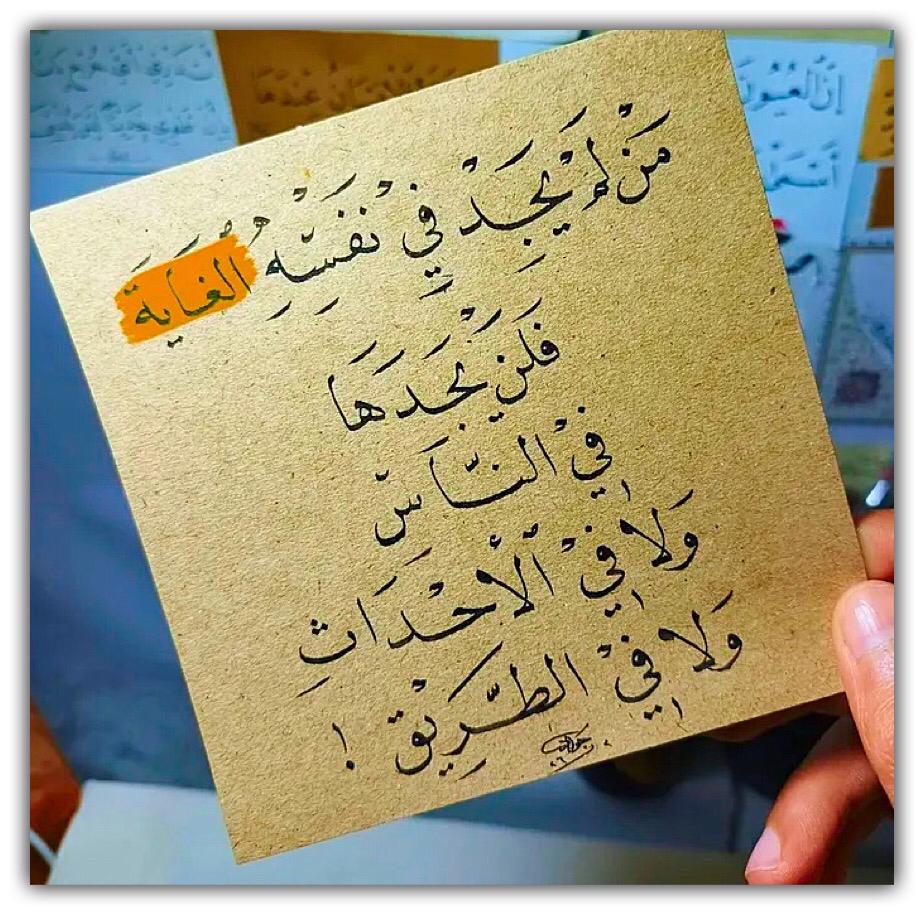 مَنْ لَمْ يَجِدْ فِي نَفْسِهِ الغَايَةَ
فَلَنْ يَجِدَهَا
فِي النَّاسِ
وَلَا فِي الْأَحْدَاثِ
وَلَا فِي الطَّرِيْقِ !